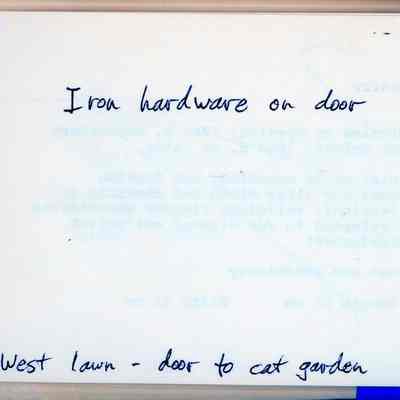 Iron hardware on door
West lawn - door to cat garden